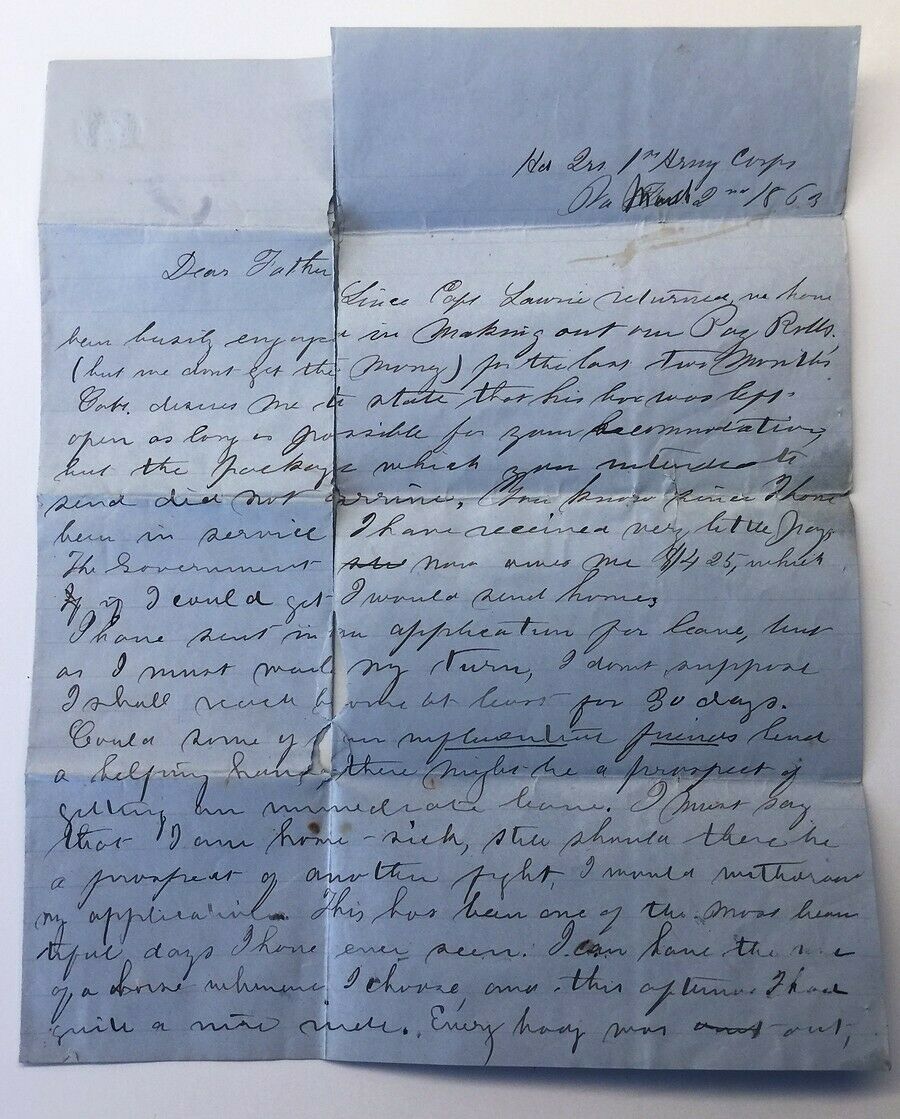 Hd Qrs 1st Army Corps
March 2nd 1863
Dear Father
Since Capt Lawrie returned, we have
been busily engaged in making out our Pay Rolls.
(but we dont get the money) for the last two Months
desires me to state that his box was left
open as long as possible for your accommodation,
but the package which you intended to
send did not arrive. You know since I have
been in service I have received very little Pay
The Government now owes me $1425, which
if I could get I would send home,
I have sent in an application for leave, but
as I must wait my turn, I dont suppose
I shall reach home at least for 30 days.
Could some of our influential friends lend
a helping hand, there might be a prospect of
getting an immediate leave. I must say
that I am home-sick, still should there be
a prospect of another fight, I would withdraw
my application. This has been one of the most beau
tiful days I have ever seen. I can have the use
of a horse whenever I choose, and this afternoon I had
quite a nice ride. Every body was out,